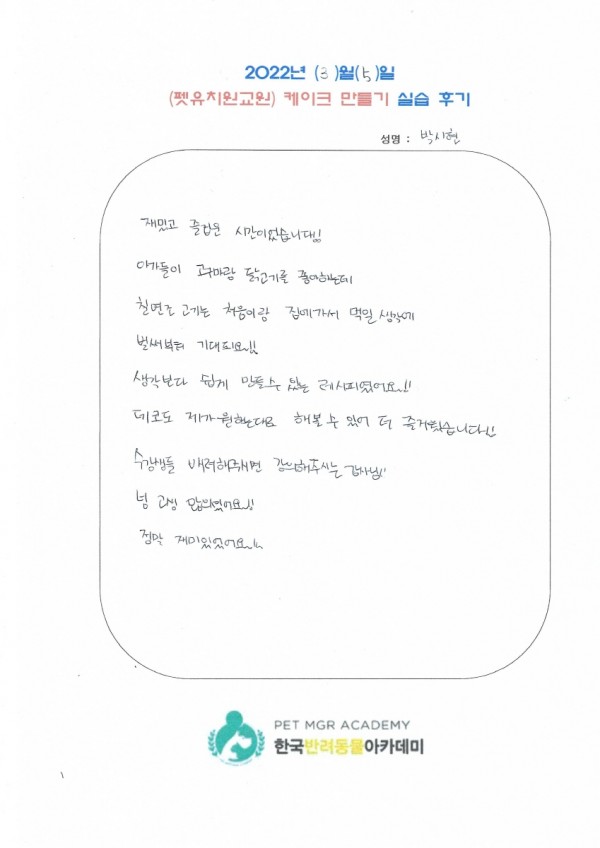 2022년 (3)월(5)일
(펫유치원교원) 케이크 만들기 실습 후기
성명 : 박시현
재밌고 즐겁운 시간이었습니다!!
아가들이 고구마랑 닭고기를 좋아하는데
칠면조 고기는 처음이랑 집에가서 먹일 생각에
벌써부터 기대되요!!
생각보다 쉽게 만들수 있는 레시피였어요!!
데코도 제가원하는대로 해볼 수 있어 더 즐거웠습니다!!
수강생들 배려해주시면 강의해주시는 강사님!!
넘 고생 많으셨어요!!
정말 재미있었어요!!
PET MGR ACADEMY
한국반려동물아카데미